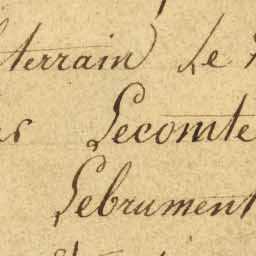 terrain Le
Lecomte
Lebrument